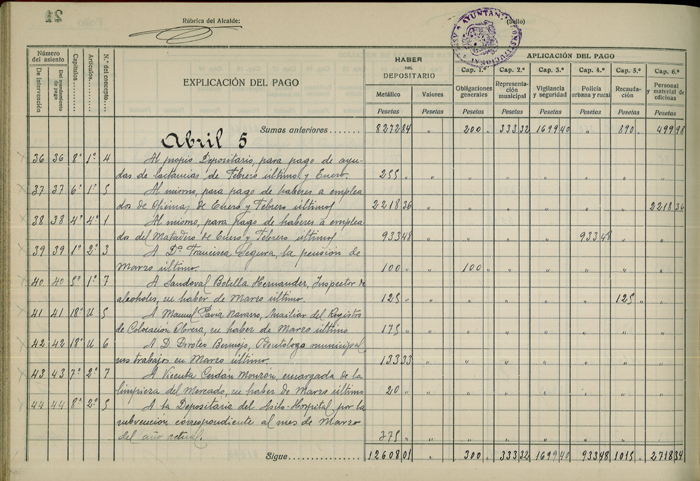 Rúbrica del Alcalde:
(Sello)
AYUNTAMIENTO CONSTITUCIONAL
Número del asiento
De intervención
Del mandamiento de pago
Capítulos
Artículos
N.º del concepto
EXPLICACIÓN DEL PAGO
HABER DEL DEPOSITARIO
Metálico Valores
Pesetas Pesetas
APLICACIÓN DEL PAGO
Cap. 1.º Cap. 2.º Cap. 3.º Cap. 4.º Cap. 5.º Cap. 6.º
Obligaciones generales
Representación municipal
Vigilancia y seguridad
Policía urbana y rural
Recaudación
Personal y material de oficinas
Pesetas Pesetas Pesetas Pesetas Pesetas Pesetas
Sumas anteriores 8272 84 " 200 " 333 32 1699 40 " 890 " 499 98
Abril 5
36 36 8º 1º 4 Al propio Depositario, para pago de ayu-
das de lactancias de Febrero último y Enero. 255 "
37 37 6º 1º 5 Al mismo, para pago de haberes a emplea
dos de Oficinas de Enero y Febrero últimos 2218 36 2218 34
38 38 4º 4º 1 Al mismo, para pago de haberes a emplea
do del Matadero de Enero y Febrero últimos 933 48 933 48
39 39 1º 2º 3 A Dª Francisca Segura, la pensión de
Marzo último. 100 " 100 "
40 40 5º 1º 7 A Sandoval Botella Hernander, Inspector de
alcoholes, su haber de Marzo último. 125 " 125 "
41 41 18º U 5 A Manuel Pavia Navarro, Auxiliar del Registro
de Colocación Obrera, su haber de Marzo último 175 "
42 42 18º U 6 A D. Doroteo Bermejo, Odontólogo municipal
sus trabajos en Marzo último. 133 33
43 43 7º 2º 7 A Vicenta Cerdán Monzón, encargada de la
limpieza del Mercado, su haber de Marzo último 20 "
44 44 8º 2º 5 A la Depositaria del Asilo-Hospital, por la
subvención correspondiente al mes de Marzo
del año actual. 375 "
Sigue 12608 01 " 300 " 333 32 1699 40 933 48 1015 " 2718 34